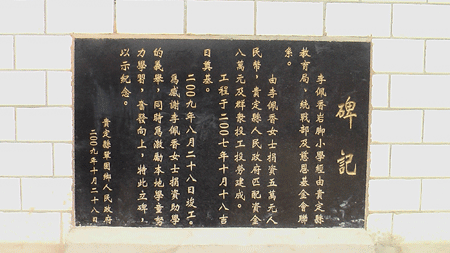 碑記
李佩香岩脚小學經由貴定縣
教育局、統戰部及慈恩基金會聯
系。
由李佩香女士捐資五萬元人
民幣，貴定縣人民政府匹配資金
八萬元及群衆投工投勞建成。
工程于二〇〇七年十月十八吉
日奠基。
二〇〇九年八月二十八日竣工。
爲感謝李佩香女士捐資助學
的義舉，同時爲激勵本地學童努
力學習，奮發向上，特此立碑，
以示紀念。
貴定縣鞏固鄉人民政府
二〇〇九年十月二十八日